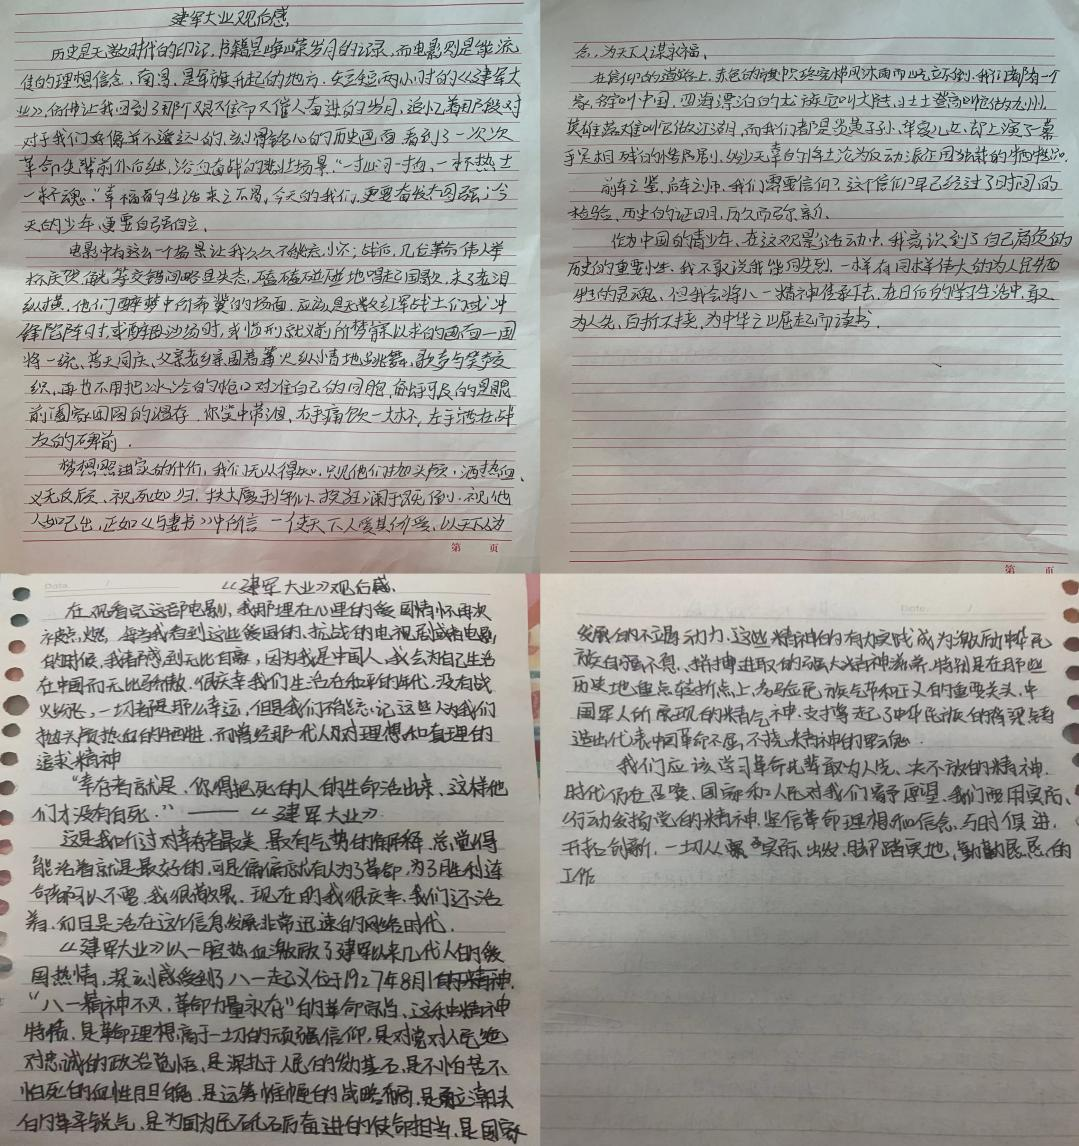 建军大业观后感
历史是无数时代的印记,书籍是峥嵘岁月的记录,而电影则是能流
传的理想信念。南昌,是军旗升起的地方,在短短两小时的《建军大
业》,仿佛让我回到了那个艰难而又催人奋进的岁月,追忆着那段对
对于我们好像并不遥远的,刻骨铭心的历史画面,看到了一次次
革命先辈前仆后继,浴血奋战的悲壮场景。“一寸山河一寸血,一抔热土
一抔魂。”幸福的生活来之不易,今天的我们,更要奋发图强;今
天的少年,更要自强自立。
电影中有这么一个场景让我久久不能忘怀:战后,几位革命伟人举
杯庆贺,觥筹交错间略显失态,磕磕碰碰地唱起国歌,来了老泪
纵横。他们醉梦中所希冀的场面,应该是无数红军战士们或冲
锋陷阵时,或醉卧沙场时,或临刑就义前所梦寐以求的画面—国
将一统,普天同庆,父亲老乡亲围着篝火纵情地跳舞,歌声与笑声交
织,再也不用把冰冷的枪口对准自己的同胞,奋等可及的是眼
前阖家团圆的温存,你笑中带泪,右手痛饮一大杯,左手洒在战
友的碑前。
梦想照进现实的代价,我们无从得知,只见他们抛头颅,洒热血,
义无反顾、视死如归,扶大厦于将倾,挽狂澜于既倒,视他
人如己出,正如《与妻书》中所言—使天下人爱其所爱,以天下人为
第 页
念,为天下人谋永福。
在信仰的道路上,赤色的旗帜终究栉风沐雨而屹立不倒。我们都有一个
家,名字叫中国,四海漂泊的龙族它叫大陆,壮士登高叫它做九州,
英雄落难叫它做江湖,而我们都是炎黄子孙、华夏儿女,却上演了一幕
手足相残的惨局剧,纷纷无辜的将士沦为反动派在国独裁的牺牲品。
前车之鉴,后车之师,我们需要信仰?这个信仰早已经过了时间的
检验、历史的证明,历久而弥新。
作为中国的青少年,在这次观影活动中,我意识到了自己肩负的
历史的重要性,我不敢说我能同先烈一样有同样伟大的为人民牺
牲的灵魂,但我会将八一精神传承下去,在日后的学习生活中,敢
为人先,百折不挠,为中华之崛起而读书。
第 页
Date. /
《建军大业》观后感.
在观看完这部电影,我那埋在心里的爱国情怀再次
被点燃,每当我看到这些爱国的、抗战的电视剧或者电影
的时候,我都感到无比自豪,因为我是中国人,我会为自己生活
在中国而无比骄傲,很庆幸我们生活在和平的年代,没有战
火纷飞,一切都是那么幸运,但是我们不能忘记这些人为我们
抛头颅热血的牺牲,而曾经那一代人对理想和真理的
追求精神
“幸存者就是,你得把死的人的生命活出来,这样他
们才没有白死。”——《建军大业》
这是我听过对幸存者最美,最有气势的解释,总觉得
能活着就是最好的,可是偏偏就有人为了革命,为了胜利连
命都可以不要,我很敬畏,现在的我很庆幸,我们还活
着,而且是活在这个信息发展非常迅速的网络时代。
《建军大业》以一腔热血激励了建军以来几代人的爱
国热情,深刻感受到了八一起义位于1927年8月1日的精神,
“八一精神不灭,革命力量永存”的革命宗旨、这种精神
特质,是革命理想高于一切的顽强信仰,是对党对人民绝
对忠诚的政治觉悟,是深扎于人民的发力基石,是不怕苦不
怕死的血性胆魄,是运筹帷幄的战略布局,是勇立潮头
的革辛锐气,是为国为民砥砺奋进的使命担当,是国家
Date. /
发展的不竭动力,这些精神的有力实践成为激励中华民
族自强不息、拼搏进取的强大精神源泉,特别是在那些
历史地重点转折点上,考验民族气节和正义的重要关头,中
国军人所展现的精气神,支撑起了中华民族的脊梁,铸
造出代表中国革命不屈,不挠精神的军魂。
我们应该学习革命先辈敢为人先、决不放的精神,
时代仍在召唤,国家和人民对我们寄予厚望,我们要用实际
行动发扬党的精神,坚信革命理想和信念,与时俱进,
开拓创新,一切从实际出发,脚踏实地,勤勤恳恳的
工作